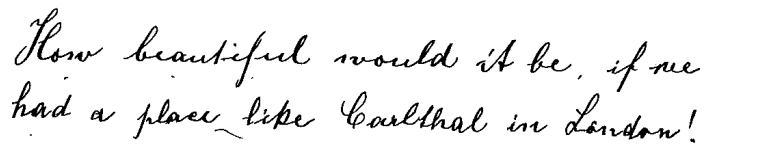 How beautiful would it be, if we
had a place like Carlthal in London!